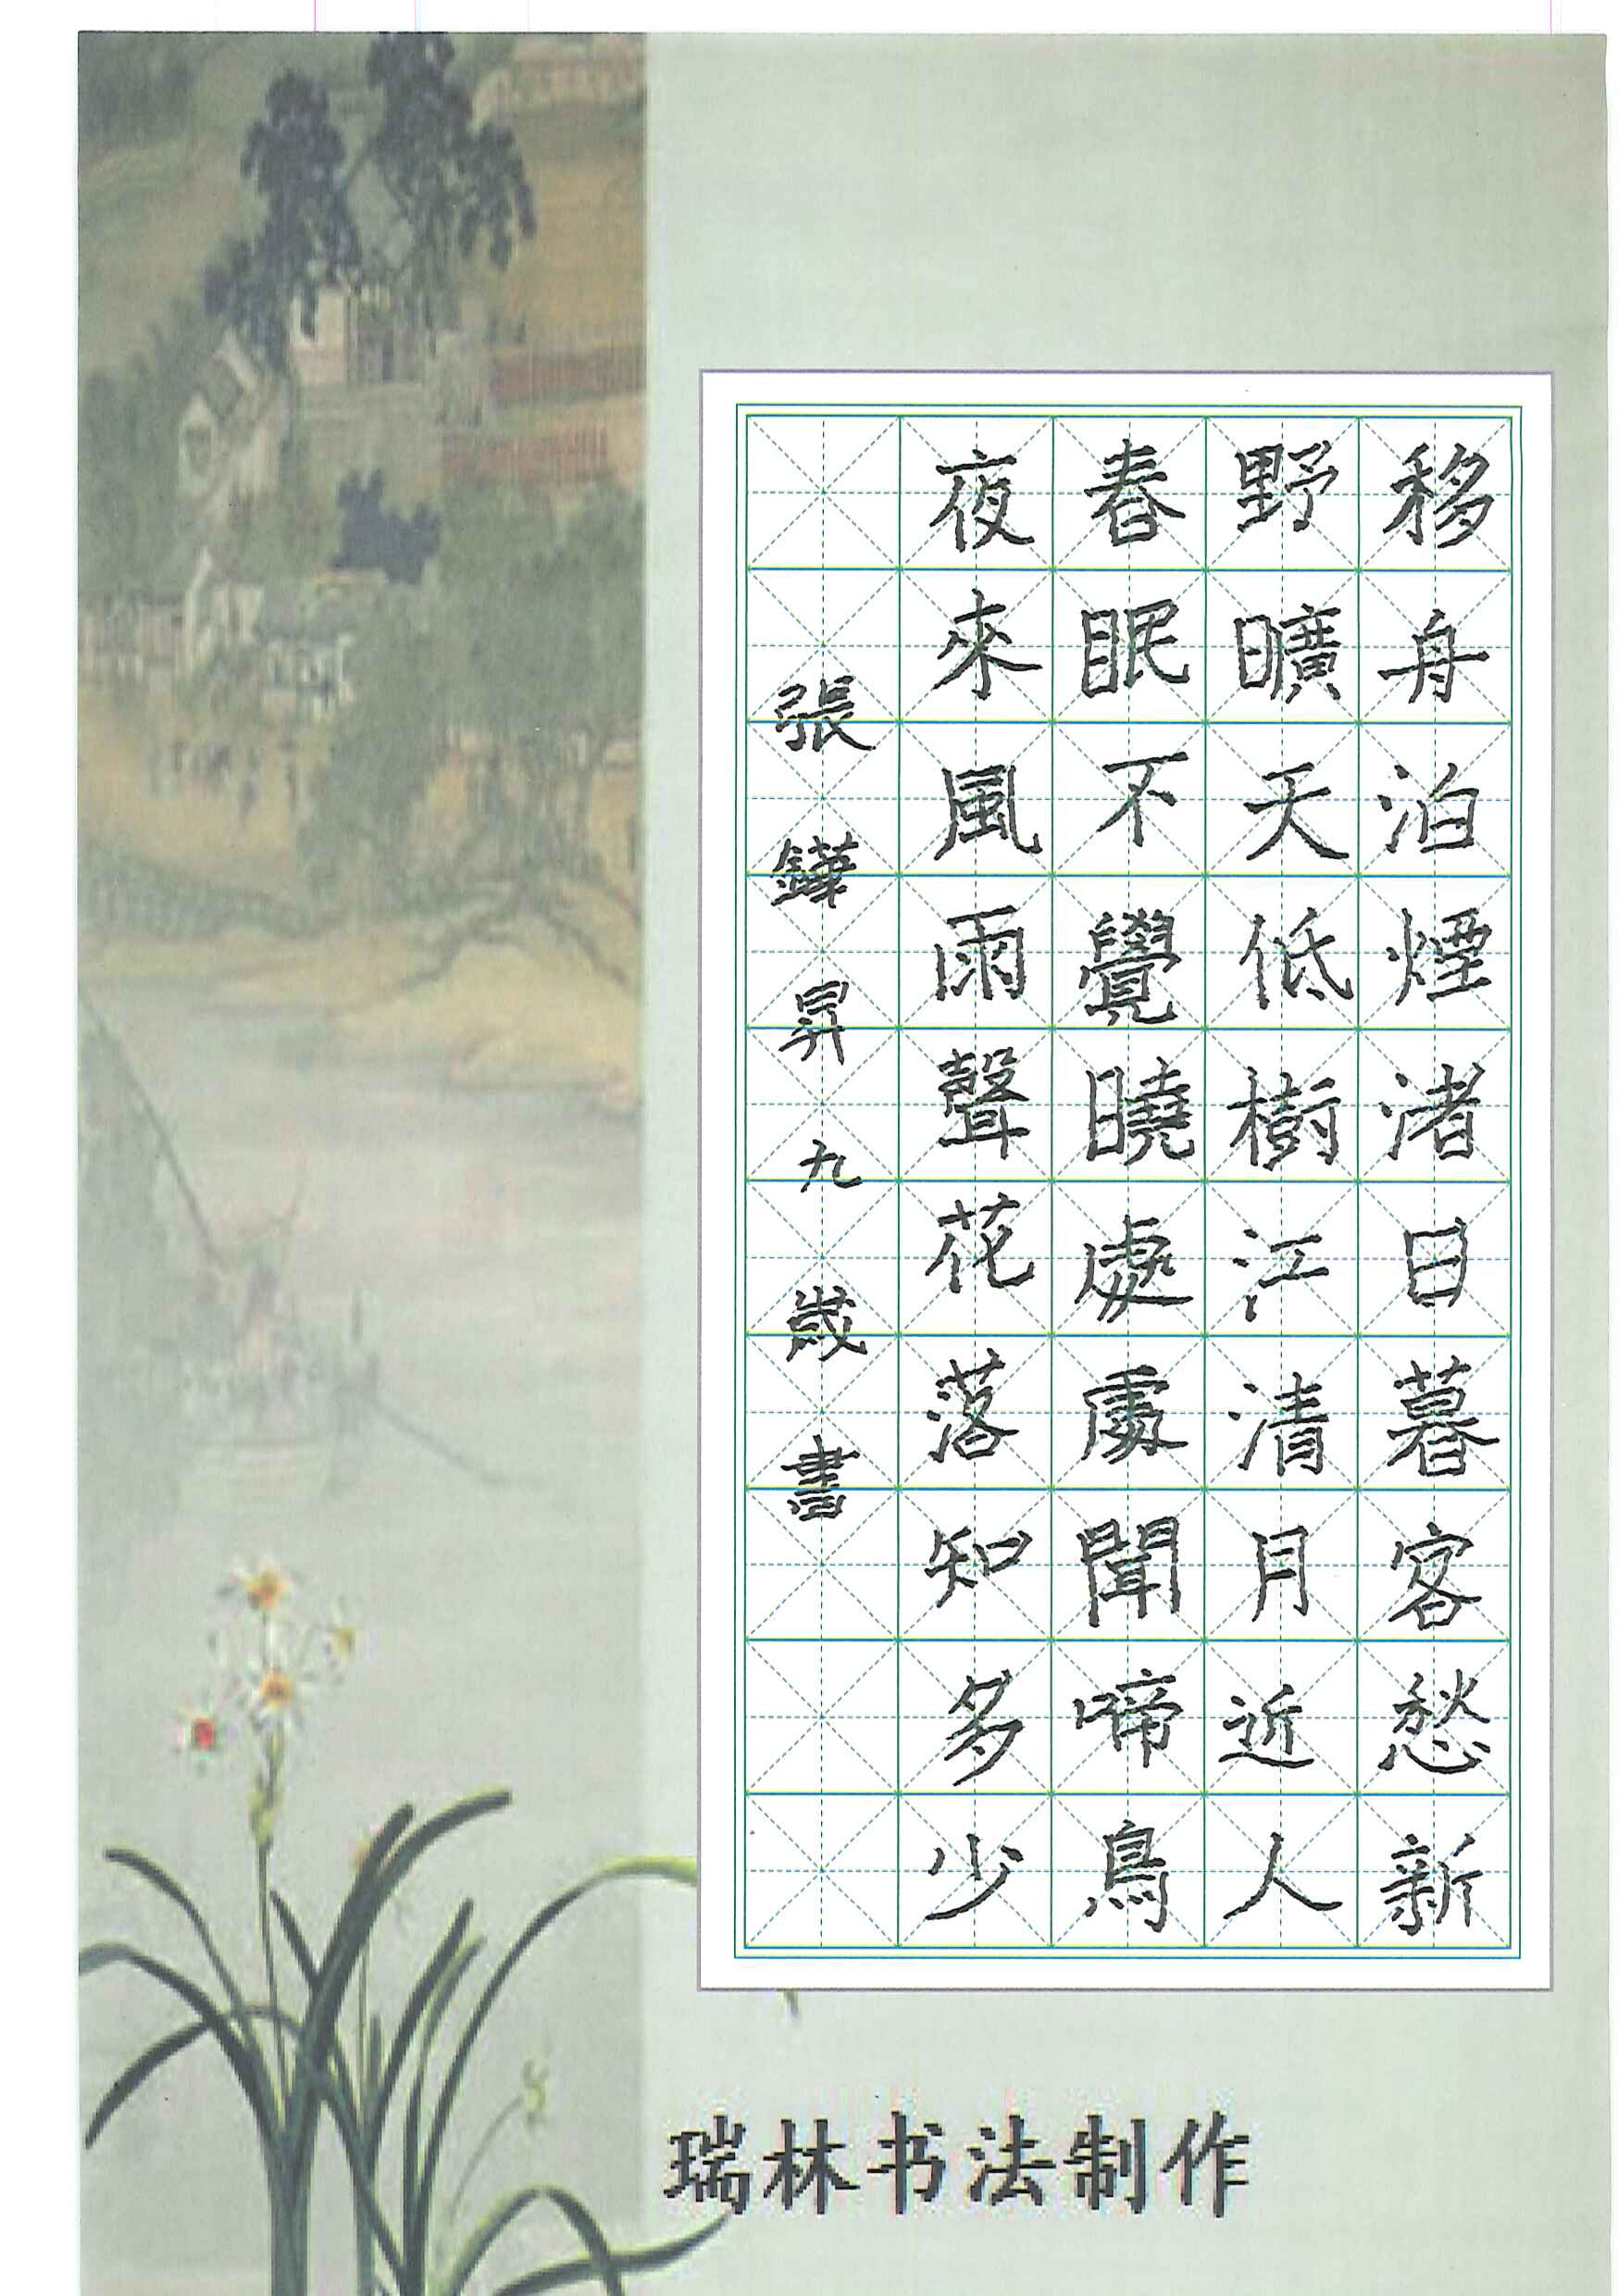 移舟泊煙渚日暮客愁新
野曠天低樹江清月近人
春眠不覺曉處處聞啼鳥
夜來風雨聲花落知多少
張鏵昇九歲書
瑞林书法制作